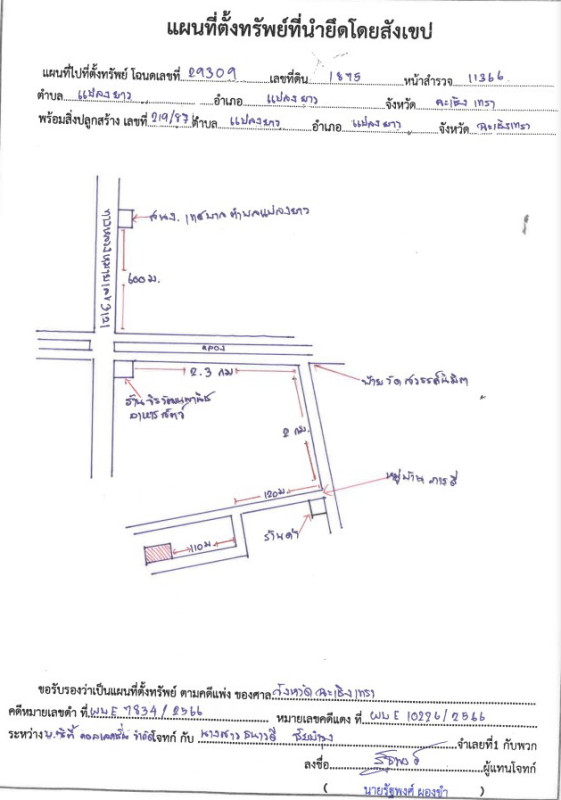 แผนที่ตั้งทรัพย์ที่นำยึดโดยสังเขป
แผนที่ไปที่ตั้งทรัพย์ โฉนดเลขที่ 29309 เลขที่ดิน 1875 หน้าสำรวจ 11366
ตำบล แปลงยาว อำเภอ แปลงยาว จังหวัด ฉะเชิงเทรา
พร้อมสิ่งปลูกสร้าง เลขที่ 219/87 ตำบล แปลงยาว อำเภอ แปลงยาว จังหวัด ฉะเชิงเทรา
สนง. เทศบาลตำบลแปลงยาว
ทางหลวงหมายเลข 3121
600 ม.
คลอง
2.3 กม
ร้าน
อาหารสัตว์
ป้ายวัดสวรรค์นิมิต
2 กม.
หมู่บ้าน ภารดี
120 ม
ร้านค้า
110 ม
ขอรับรองว่าเป็นแผนที่ตั้งทรัพย์ ตามคดีแพ่ง ของศาล จังหวัดฉะเชิงเทรา
คดีหมายเลขดำ ที่ ผบE 7834/2566 หมายเลขคดีแดง ที่ ผบE 10226/2566
ระหว่าง จำกัด โจทก์ กับ นางสาว จำเลยที่1 กับพวก
ลงชื่อ ผู้แทนโจทก์
( นายรัฐพงศ์ ผองขำ )